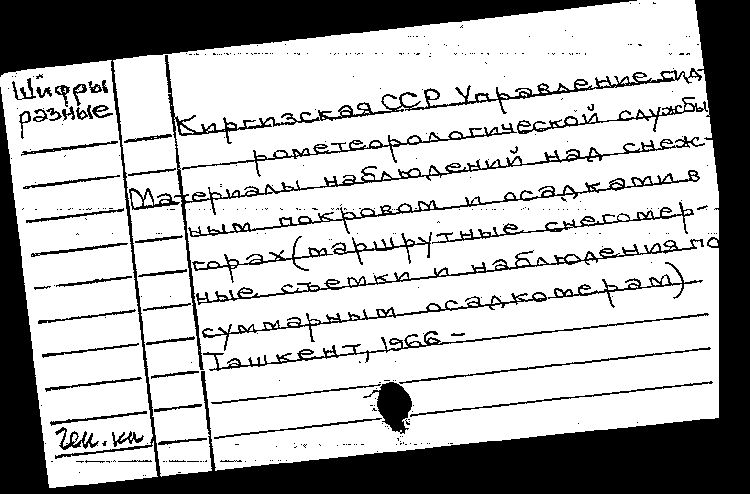 Шифры
разные
Киргизская ССР Управление гид-
рометеорологической службы
Материалы наблюдений над снеж-
ным покровом и осадками в
горах (маршрутные снегомер-
ные съемки и наблюдения по
суммарным осадкомерам)
Ташкент, 1966 –
Ген. кат.